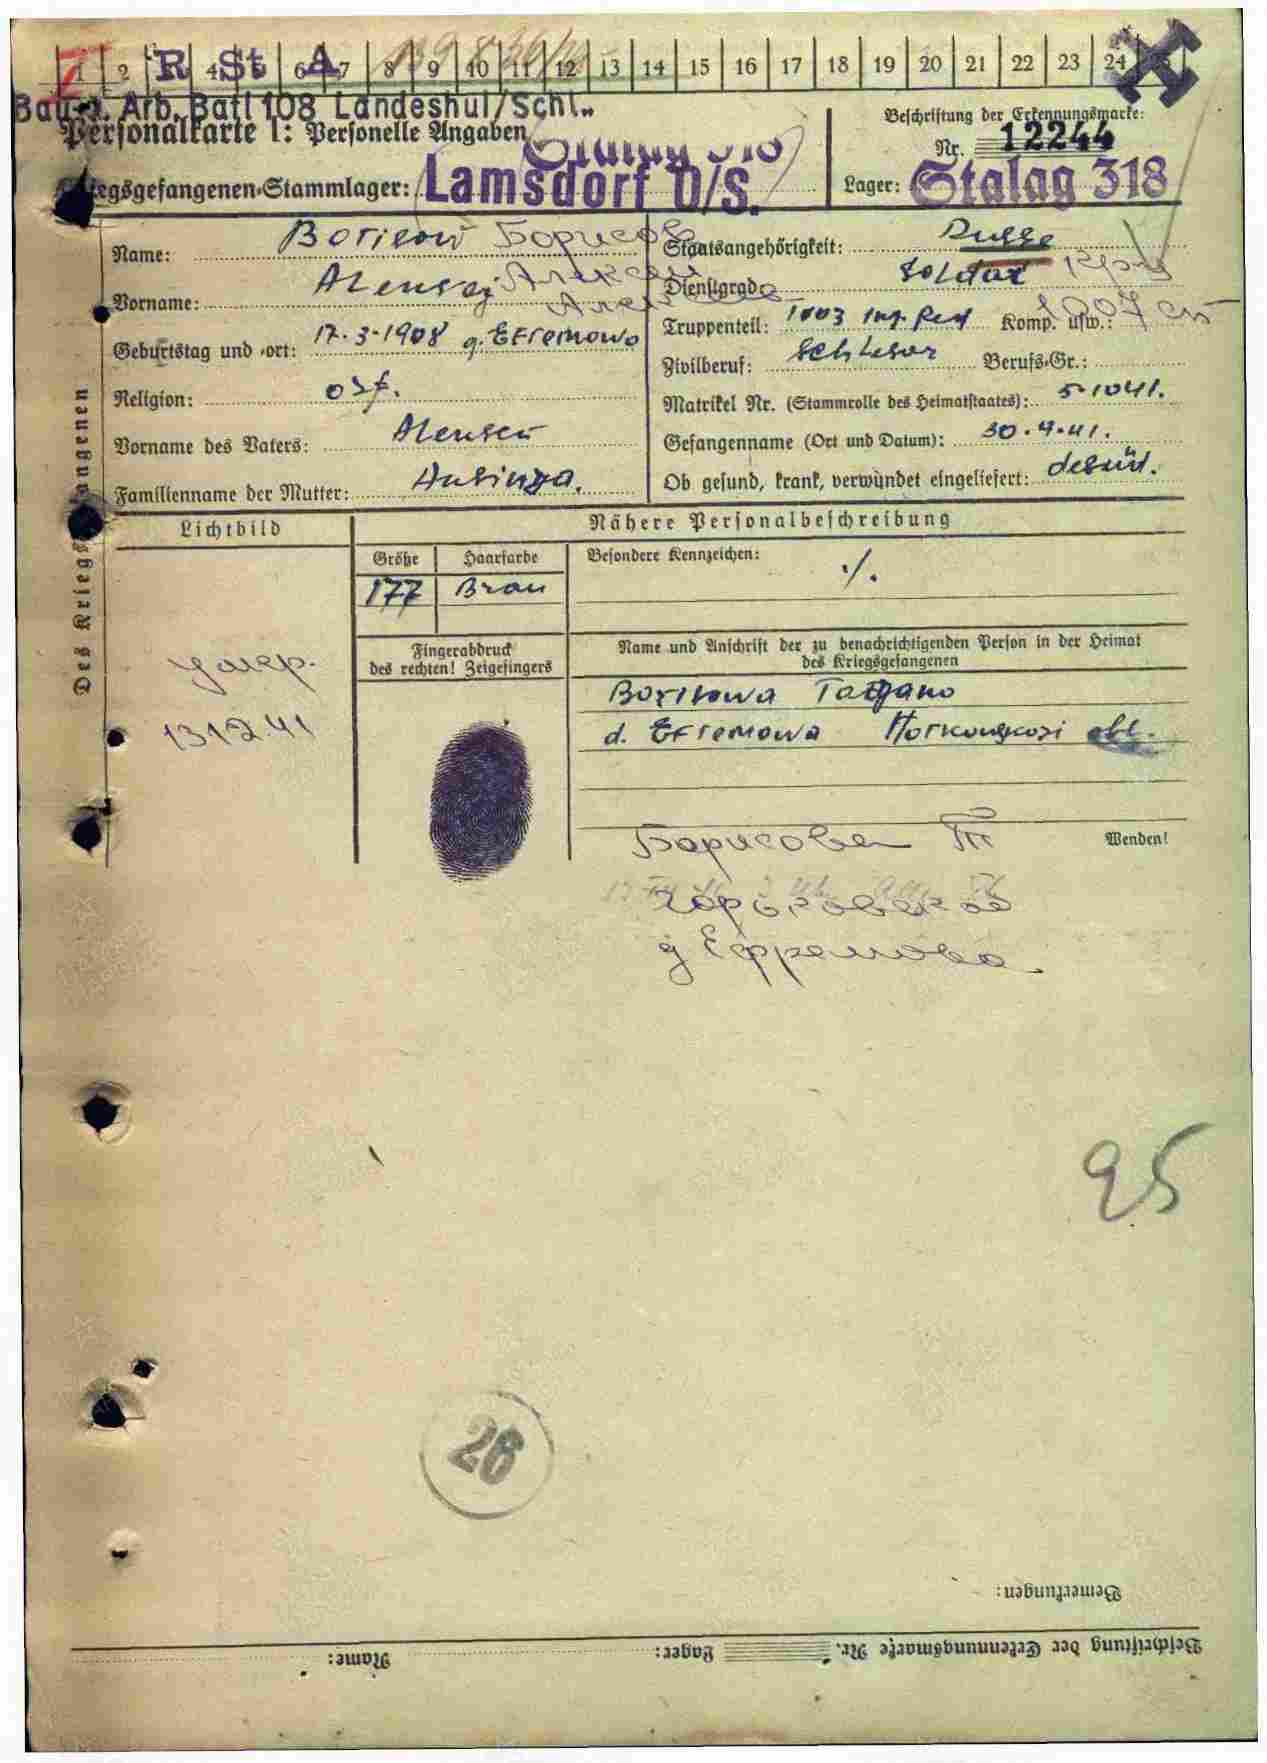 1 2 R 4 St 6 A 7 8 9 10 11 12 13 14 15 16 17 18 19 20 21 22 23 24
Bau-u. Arb. Batl 108 Landeshut/Schl.
Personalkarte I: Personelle Angaben
Beschriftung der Erkennungsmarke:
Nr. 12244
Stalag 318
Kriegsgefangenen-Stammlager: Lamsdorf O/S.
Lager: Stalag 318
Des Kriegsgefangenen
Name: Borisow Борисов
Vorname: Alexsej Алексей
Geburtstag und -ort: 17-3-1908 g. Efremowo
Religion:
Vorname des Vaters: Alexsei
Familienname der Mutter:
Staatsangehörigkeit: Russe
Dienstgrad: Soldat
Truppenteil: 1003 Komp. usw.:
Zivilberuf: Schlesar Berufs-Gr.:
Matrikel Nr. (Stammrolle des Heimatstaates): 5-1041.
Gefangenname (Ort und Datum): 30.9.41.
Ob gesund, krank, verwundet eingeliefert: desünd.
Lichtbild
умер.
13 12 41
Nähere Personalbeschreibung
Größe Haarfarbe Besondere Kennzeichen:
177 Bran ./.
Fingerabdruck
des rechten! Zeigefingers
Name und Anschrift der zu benachrichtigenden Person in der Heimat
des Kriegsgefangenen
Borisowa
d. Efremowa obl.
Wenden!
Борисова Т
Горьковской
д Ефремова
95
26
Bemerkungen:
Beschriftung der Erkennungsmarke Nr. Lager: Name: